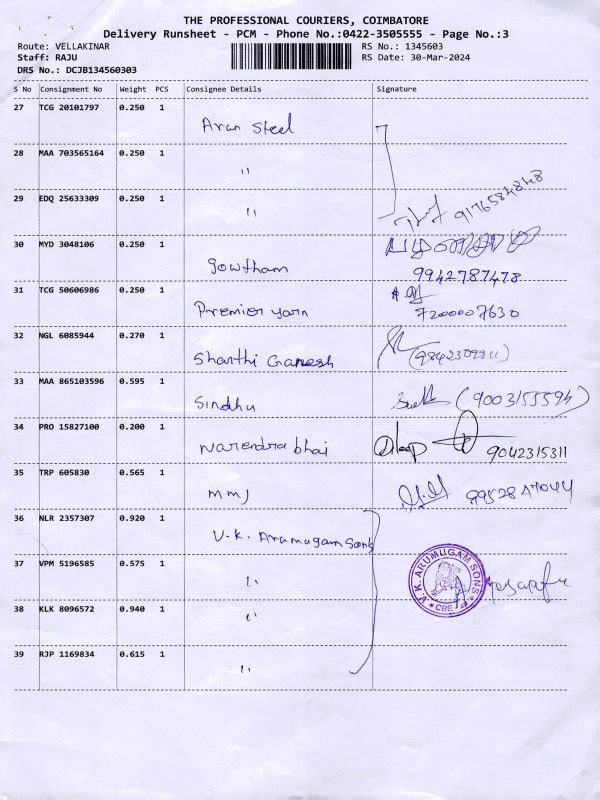 THE PROFESSIONAL COURIERS, COIMBATORE
Delivery Runsheet - PCM - Phone No.:0422-3505555 - Page No.:3
Route: VELLAKINAR RS No.: 1345603
Staff: RAJU RS Date: 30-Mar-2024
DRS No.: DCJB134560303
S No Consignment No Weight PCS Consignee Details Signature
27 TCG 20101797 0.250 1
Aran Steel
28 MAA 703565164 0.250 1
"
29 EDQ 25633309 0.250 1
"
9176584848
30 MYD 3048106 0.250 1
Gowtham
9942787478
31 TCG 50606986 0.250 1
Premier yarn
7200007630
32 NGL 6085944 0.270 1
Shanthi Ganesh
33 MAA 865103596 0.595 1
Sindhu
34 PRO 15827100 0.200 1
Narendra bhai
Dileep 9042315311
35 TRP 605830 0.565 1
MMJ
36 NLR 2357307 0.920 1
V.K. Arumugam Sons
37 VPM 5196585 0.575 1
"
V.K. ARUMUGAM SONS
* CBE *
38 KLK 8096572 0.940 1
"
39 RJP 1169834 0.615 1
"